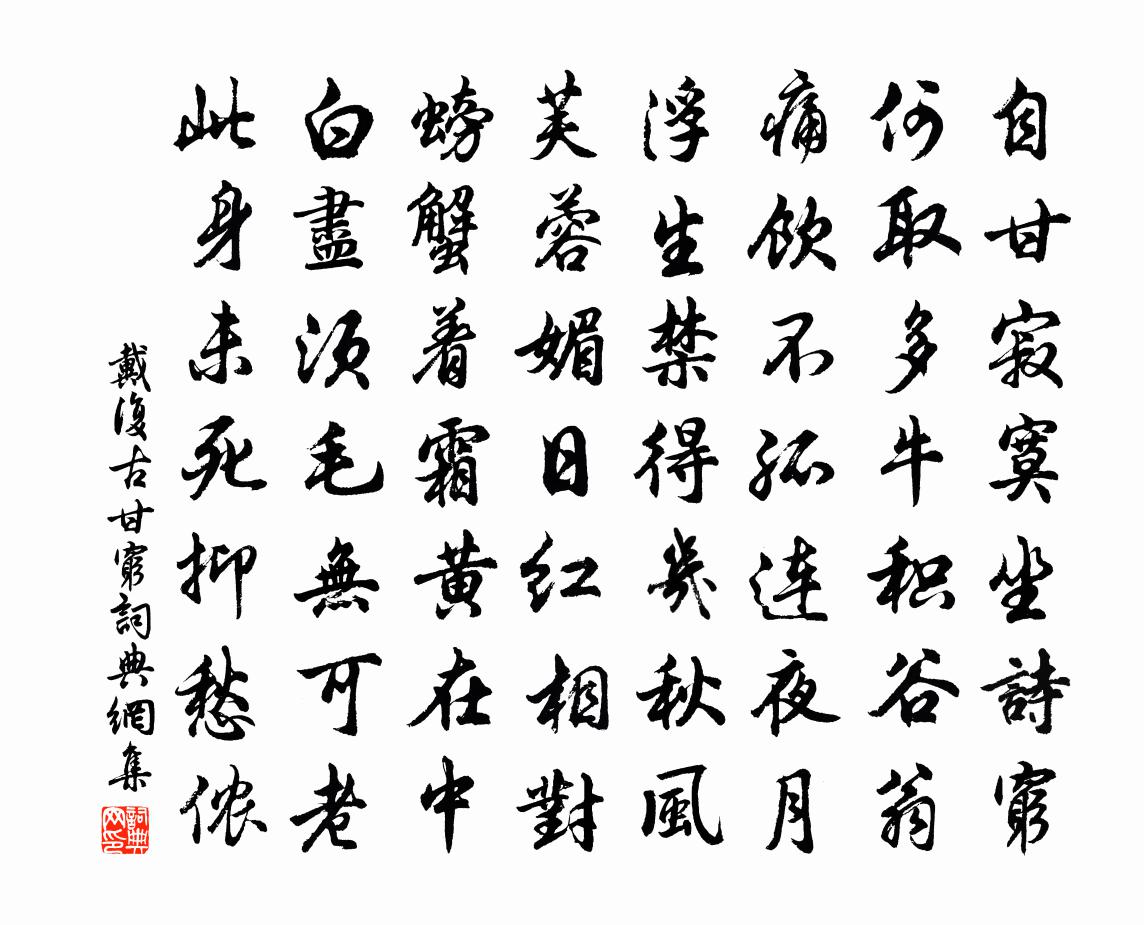 自甘寂寞坐詩窮
何取多牛积谷翁
痛飲不孤連夜月
浮生禁得幾秋風
芙蓉媚日红相對
螃蟹着霜黄在中
白盡须毛無可老
此身未死抑愁侬
戴復古甘窮詞典網集
詞典网印